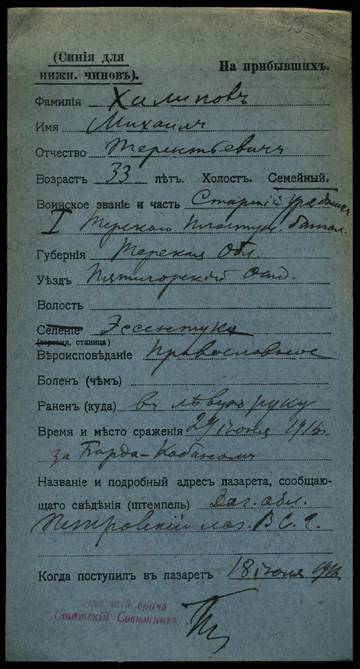 (Синія для
нижн. чиновъ).
На прибывшихъ.
Фамилія Халиповъ
Имя Михаилъ
Отчество Терентьевичъ
Возрастъ 33 лѣтъ. Холост. Семейный.
Воинское званіе и часть Старшій урядникъ
I Терскаго Пластун. батал.
Губернія Терская Обл.
Уѣздъ Пятигорскій Отд.
Волость
Селеніе Эссентуки
(станица)
Вѣроисповѣданіе Православное
Боленъ (чѣмъ)
Раненъ (куда) въ лѣвую руку
Время и мѣсто сраженія 29 1916г.
за
Названіе и подробный адресъ лазарета, сообщаю-
щаго свѣдѣнія (штемпель) Даг. обл.
Петровскій лаз. В. С. Г.
Когда поступилъ въ лазаретъ 18 іюля 1916
врачъ
Статскій Совѣтникъ